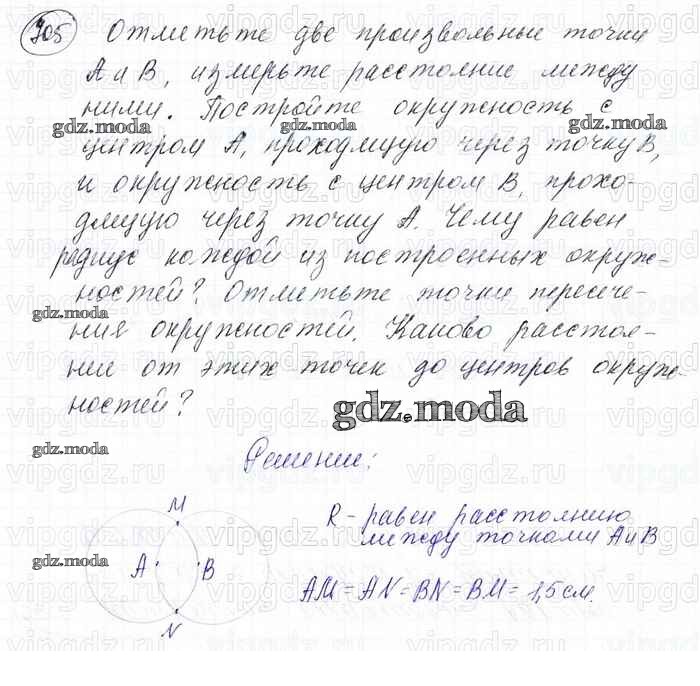 705 Отметьте две произвольные точки
А и В, измерьте расстояние между
ними. Постройте окружность с
центром А, проходящую через точку В,
и окружность с центром В, прохо-
дящую через точку А. Чему равен
радиус каждой из построенных окруж-
ностей? Отметьте точки пересече-
ния окружностей. Каково расстоя-
ние от этих точек до центров окруж-
ностей?
gdz.moda
Решение:
M
A B
N
R - равен расстоянию
между точками А и В
AM = AN = BN = BM = 1,5 см.
gdz.moda
gdz.moda
gdz.moda
gdz.moda
gdz.moda
gdz.moda
vipgdz.ru